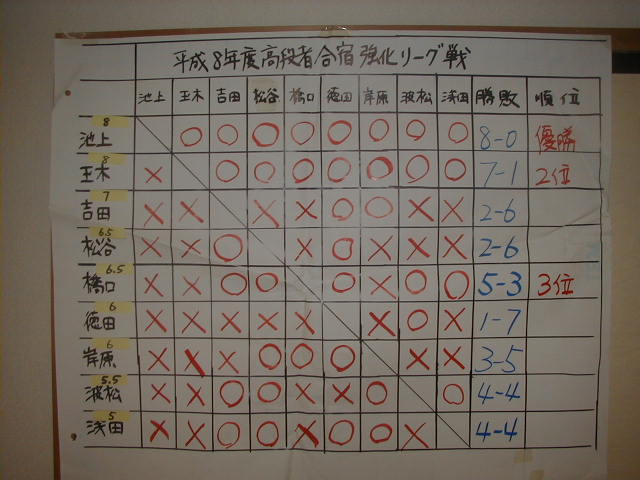 平成8年度高段者合宿強化リーグ戦
池上 玉木 吉田 松谷 橋口 徳田 岸原 波松 浅田 勝敗 順位
8 池上 ○ ○ ○ ○ ○ ○ ○ ○ 8-0 優勝
8 玉木 × ○ ○ ○ ○ ○ ○ ○ 7-1 2位
7 吉田 × × × × ○ ○ × × 2-6
6.5 松谷 × × ○ × ○ × × × 2-6
6.5 橋口 × × ○ ○ ○ × ○ ○ 5-3 3位
6 徳田 × × × × × × ○ × 1-7
6 岸原 × × × ○ ○ ○ × × 3-5
5.5 波松 × × ○ ○ × × ○ ○ 4-4
5 浅田 × × ○ ○ × ○ ○ × 4-4